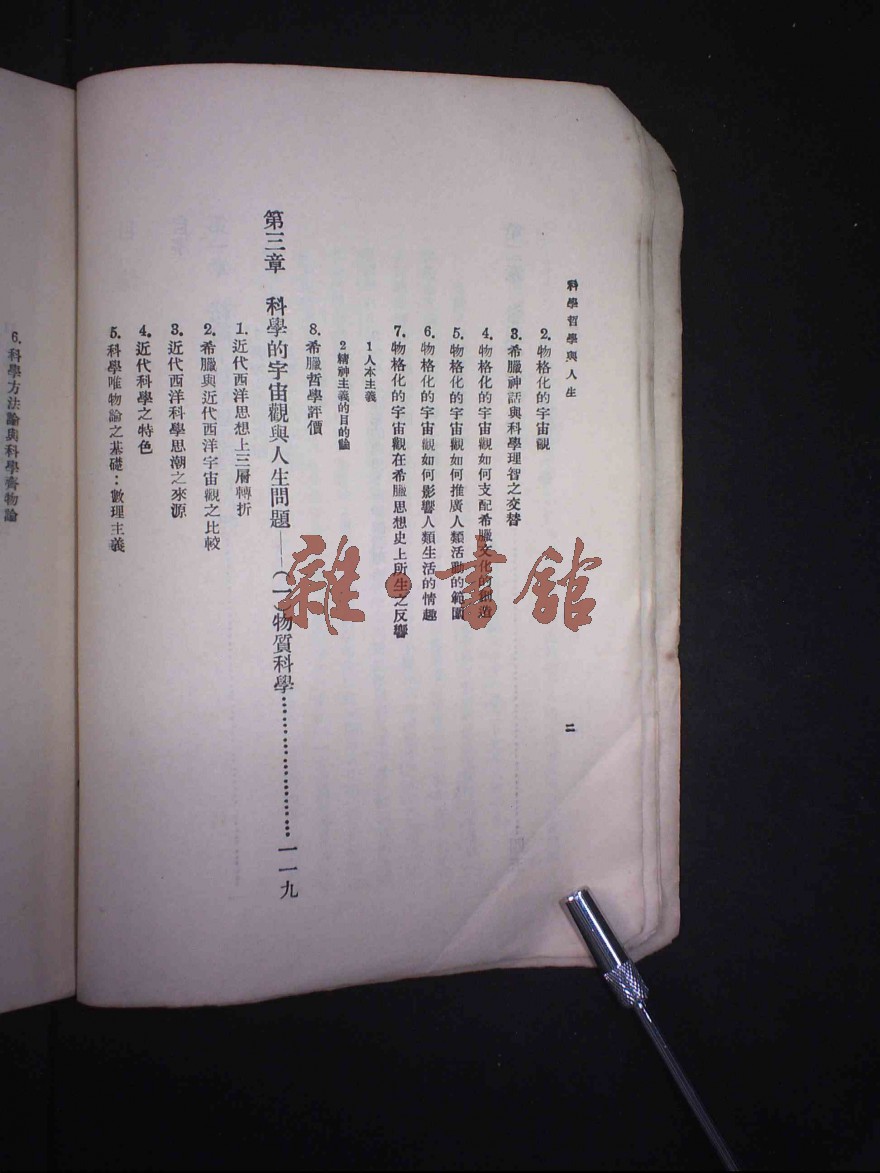 科學哲學與人生
二
2. 物格化的宇宙觀
3. 希臘神話與科學理智之交替
4. 物格化的宇宙觀如何支配希臘文化的創造
5. 物格化的宇宙觀如何推廣人類活動的範圍
6. 物格化的宇宙觀如何影響人類生活的情趣
7. 物格化的宇宙觀在希臘思想史上所生之反響
1 人本主義
2 精神主義的目的論
8. 希臘哲學評價
第三章 科學的宇宙觀與人生問題——(一)物質科學……………………一一九
1. 近代西洋思想上三層轉折
2. 希臘與近代西洋宇宙觀之比較
3. 近代西洋科學思潮之來源
4. 近代科學之特色
5. 科學唯物論之基礎：數理主義
6. 科學方法論與科學齊物論
雜·書館